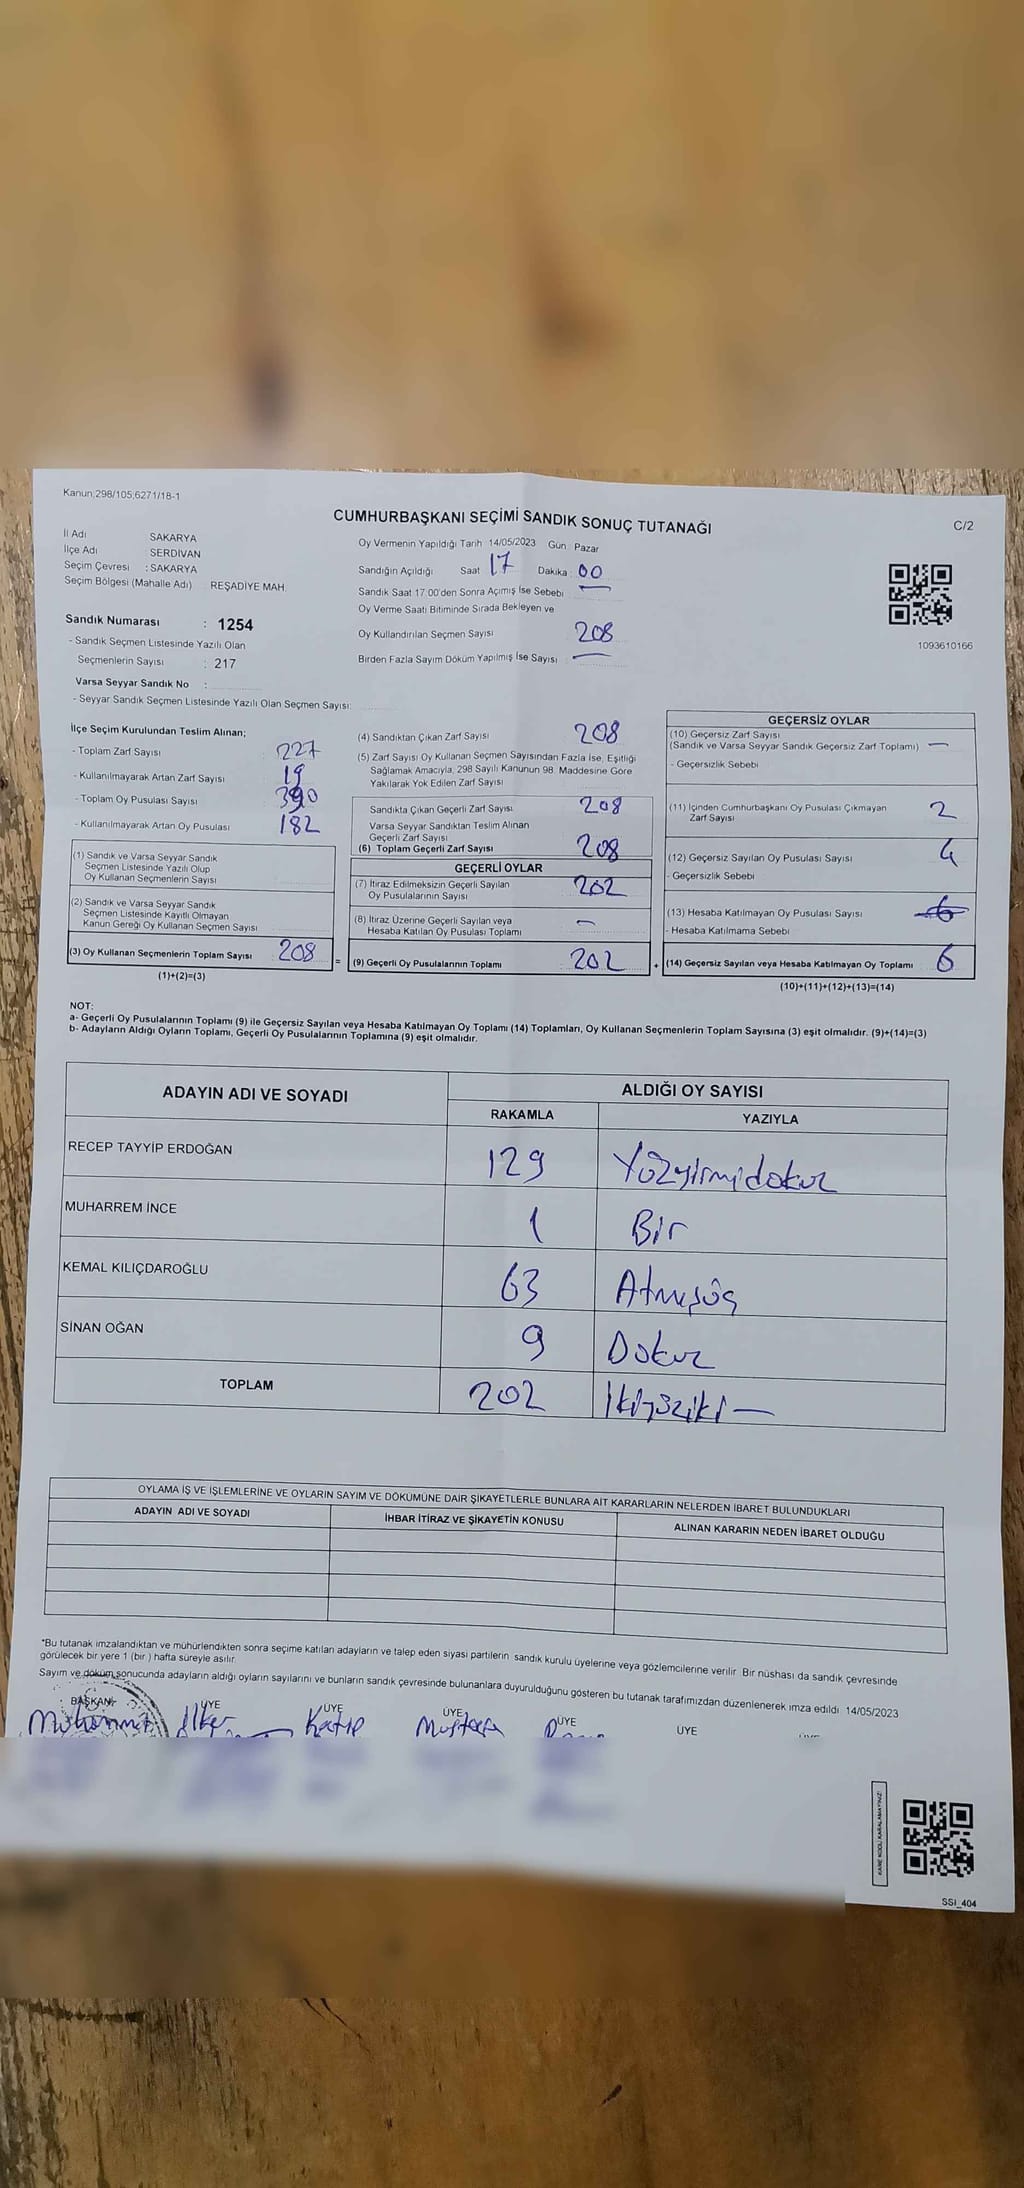 Kanun;298/105;6271/18-1
CUMHURBAŞKANI SEÇİMİ SANDIK SONUÇ TUTANAĞI
C/2
İl Adı SAKARYA
İlçe Adı SERDİVAN
Seçim Çevresi : SAKARYA
Seçim Bölgesi (Mahalle Adı) REŞADİYE MAH.
Sandık Numarası : 1254
- Sandık Seçmen Listesinde Yazılı Olan
Seçmenlerin Sayısı : 217
Varsa Seyyar Sandık No :
- Seyyar Sandık Seçmen Listesinde Yazılı Olan Seçmen Sayısı:
Oy Vermenin Yapıldığı Tarih 14/05/2023 Gün : Pazar
Sandığın Açıldığı Saat 17 Dakika : 00
Sandık Saat 17.00'den Sonra Açımış İse Sebebi —
Oy Verme Saati Bitiminde Sırada Bekleyen ve
Oy Kullandırılan Seçmen Sayısı 208
Birden Fazla Sayım Döküm Yapılmış İse Sayısı : —
1093610166
İlçe Seçim Kurulundan Teslim Alınan;
- Toplam Zarf Sayısı 227
- Kullanılmayarak Artan Zarf Sayısı 19
- Toplam Oy Pusulası Sayısı 390
- Kullanılmayarak Artan Oy Pusulası 182
(1) Sandık ve Varsa Seyyar Sandık
Seçmen Listesinde Yazılı Olup
Oy Kullanan Seçmenlerin Sayısı
(2) Sandık ve Varsa Seyyar Sandık
Seçmen Listesinde Kayıtlı Olmayan
Kanun Gereği Oy Kullanan Seçmen Sayısı
(3) Oy Kullanan Seçmenlerin Toplam Sayısı 208
(1)+(2)=(3)
=
(4) Sandıktan Çıkan Zarf Sayısı 208
(5) Zarf Sayısı Oy Kullanan Seçmen Sayısından Fazla İse, Eşitliği
Sağlamak Amacıyla, 298 Sayılı Kanunun 98. Maddesine Göre
Yakılarak Yok Edilen Zarf Sayısı
Sandıkta Çıkan Geçerli Zarf Sayısı 208
Varsa Seyyar Sandıktan Teslim Alınan
Geçerli Zarf Sayısı
(6) Toplam Geçerli Zarf Sayısı 208
GEÇERLİ OYLAR
(7) İtiraz Edilmeksizin Geçerli Sayılan
Oy Pusulalarının Sayısı 202
(8) İtiraz Üzerine Geçerli Sayılan veya
Hesaba Katılan Oy Pusulası Toplamı —
(9) Geçerli Oy Pusulalarının Toplamı 202
+
GEÇERSİZ OYLAR
(10) Geçersiz Zarf Sayısı
(Sandık ve Varsa Seyyar Sandık Geçersiz Zarf Toplamı) —
- Geçersizlik Sebebi
(11) İçinden Cumhurbaşkanı Oy Pusulası Çıkmayan
Zarf Sayısı 2
(12) Geçersiz Sayılan Oy Pusulası Sayısı 4
- Geçersizlik Sebebi
(13) Hesaba Katılmayan Oy Pusulası Sayısı 6
- Hesaba Katılmama Sebebi
(14) Geçersiz Sayılan veya Hesaba Katılmayan Oy Toplamı 6
(10)+(11)+(12)+(13)=(14)
NOT:
a- Geçerli Oy Pusulalarının Toplamı (9) ile Geçersiz Sayılan veya Hesaba Katılmayan Oy Toplamı (14) Toplamları, Oy Kullanan Seçmenlerin Toplam Sayısına (3) eşit olmalıdır. (9)+(14)=(3)
b- Adayların Aldığı Oyların Toplamı, Geçerli Oy Pusulalarının Toplamına (9) eşit olmalıdır.
ADAYIN ADI VE SOYADI ALDIĞI OY SAYISI
RAKAMLA YAZIYLA
RECEP TAYYİP ERDOĞAN 129 Yüzyirmidokuz
MUHARREM İNCE 1 Bir
KEMAL KILIÇDAROĞLU 63 Atmışüç
SİNAN OĞAN 9 Dokuz
TOPLAM 202 İkiyüziki —
OYLAMA İŞ VE İŞLEMLERİNE VE OYLARIN SAYIM VE DÖKÜMÜNE DAİR ŞİKAYETLERLE BUNLARA AİT KARARLARIN NELERDEN İBARET BULUNDUKLARI
ADAYIN ADI VE SOYADI İHBAR İTİRAZ VE ŞİKAYETİN KONUSU ALINAN KARARIN NEDEN İBARET OLDUĞU
*Bu tutanak imzalandıktan ve mühürlendikten sonra seçime katılan adayların ve talep eden siyasi partilerin sandık kurulu üyelerine veya gözlemcilerine verilir. Bir nüshası da sandık çevresinde
görülecek bir yere 1 (bir ) hafta süreyle asılır.
Sayım ve döküm sonucunda adayların aldığı oyların sayılarını ve bunların sandık çevresinde bulunanlara duyurulduğunu gösteren bu tutanak tarafımızdan düzenlenerek imza edildi 14/05/2023
BAŞKAN ÜYE ÜYE ÜYE ÜYE ÜYE
Muhammet İlker Katip Mustafa
KARE KODU KARALAMAYINIZ!
SSI_404